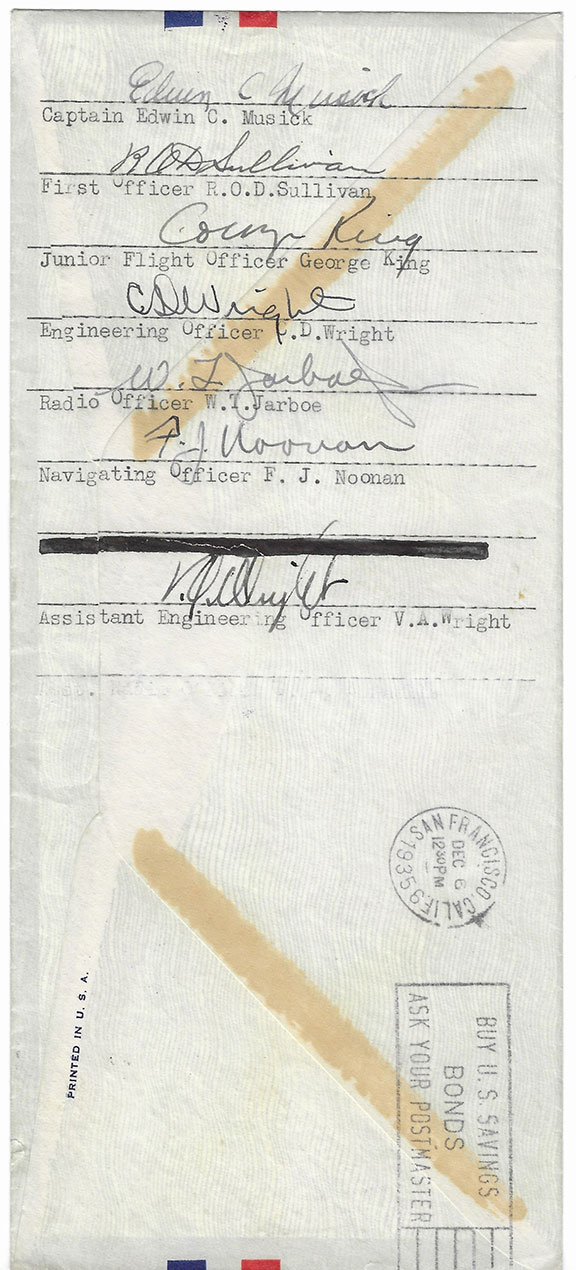 Edwin C Musick
Captain Edwin C. Musick
R.O.D. Sullivan
First Officer R.O.D.Sullivan
George King
Junior Flight Officer George King
C.D.Wright
Engineering Officer C.D.Wright
W. T. Jarboe Jr
Radio Officer W.T.Jarboe
F. J. Noonan
Navigating Officer F. J. Noonan
V.A.Wright
Assistant Engineering Officer V.A.Wright
SAN FRANCISCO CALIF.
DEC 6
12 30 PM
1935
BUY U.S. SAVINGS
BONDS
ASK YOUR POSTMASTER
PRINTED IN U. S. A.